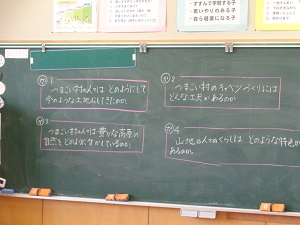 すすんで学習する子
思いやりのある子
自ら健康になる子
1
つまごい村の人々は どのようにして
今のような土地にしてきたのか。
2
つまごい村のキャベツづくりには
どんな工夫があるのか。
3
つまごい村の人々は 豊かな高原の
自然をどのように生かしているのか。
4
山地の人々のくらしは どのような特色が
あるのか。